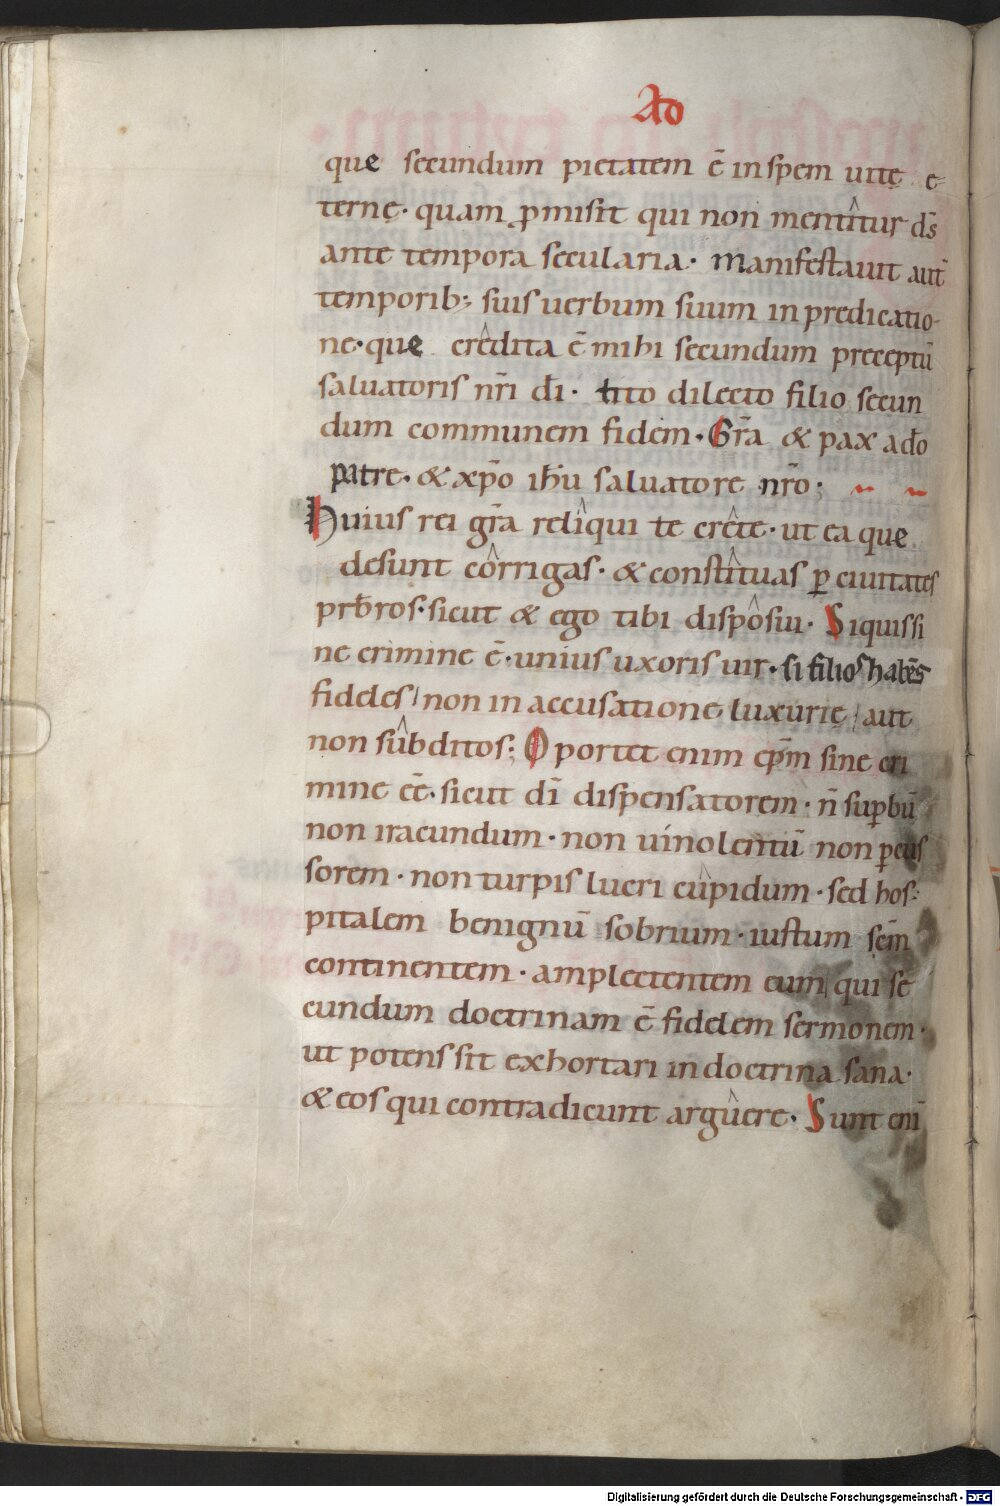 Ad
que secundum pietatem ē in spem uite e-
terne · quam ꝓmisit qui non mentîtur ds̄
ante tempora secularia · Manifestauit aut̄
temporib; suis uerbum suum in predicatio-
ne · que crêdita ē mihi secundum preceptū
saluatoris nr̄i dī · tito dilecto filio secun
dum communem fidem · Gr̄a & pax a do
patre · & xp̄o ihu̅ saluatore nr̄o ;
Huius rei gr̄a relîqui te crête · ut ea que
desunt côrrigas · & constîtuas ꝑ ciuitates
prb̄ros · sicut & ego tibi dispôsui · Siquis si
ne crimine ē · unius uxoris uir · si filios habēs
fideles / non in accusatione luxurie / aut
non sûbditos ; Oportet enim ep̄m sine cri
mine ēē · sicut dī dispensatorem · n̄ suꝑbū
non iracundum · non uinolentū non ꝑcus
sorem · non turpis lucri cûpidum · sed hos-
pitalem benignū sobrium · iustum sc̄m
continentem · amplectentem eum qui se
cundum doctrinam ē fidelem sermonem ·
ut potens sit exhortari in doctrina sana ·
& eos qui contradicunt argûere · Sunt eni̅
Digitalisierung gefördert durch die Deutsche Forschungsgemeinschaft - DFG